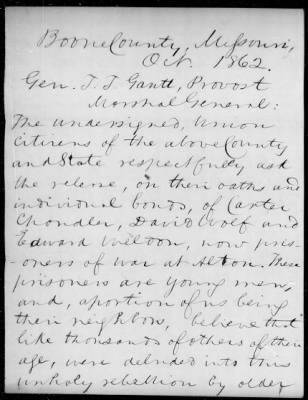 Boone County, Missouri,
Oct. 1862.
Gen. T. T. Gantt, Provost
Marshal General:
The undersigned, Union
Citizens of the above County
and State respectfully ask
the release, on their oaths and
individual bonds, of Carter
Chandler, David Wolf and
Edward Wilson, now pris-
oners of war at Alton. These
prisoners are young men,
and, a portion of us being
their neighbors, believe that
like thousands of others of their
age, were deluded into this
unholy rebellion by older